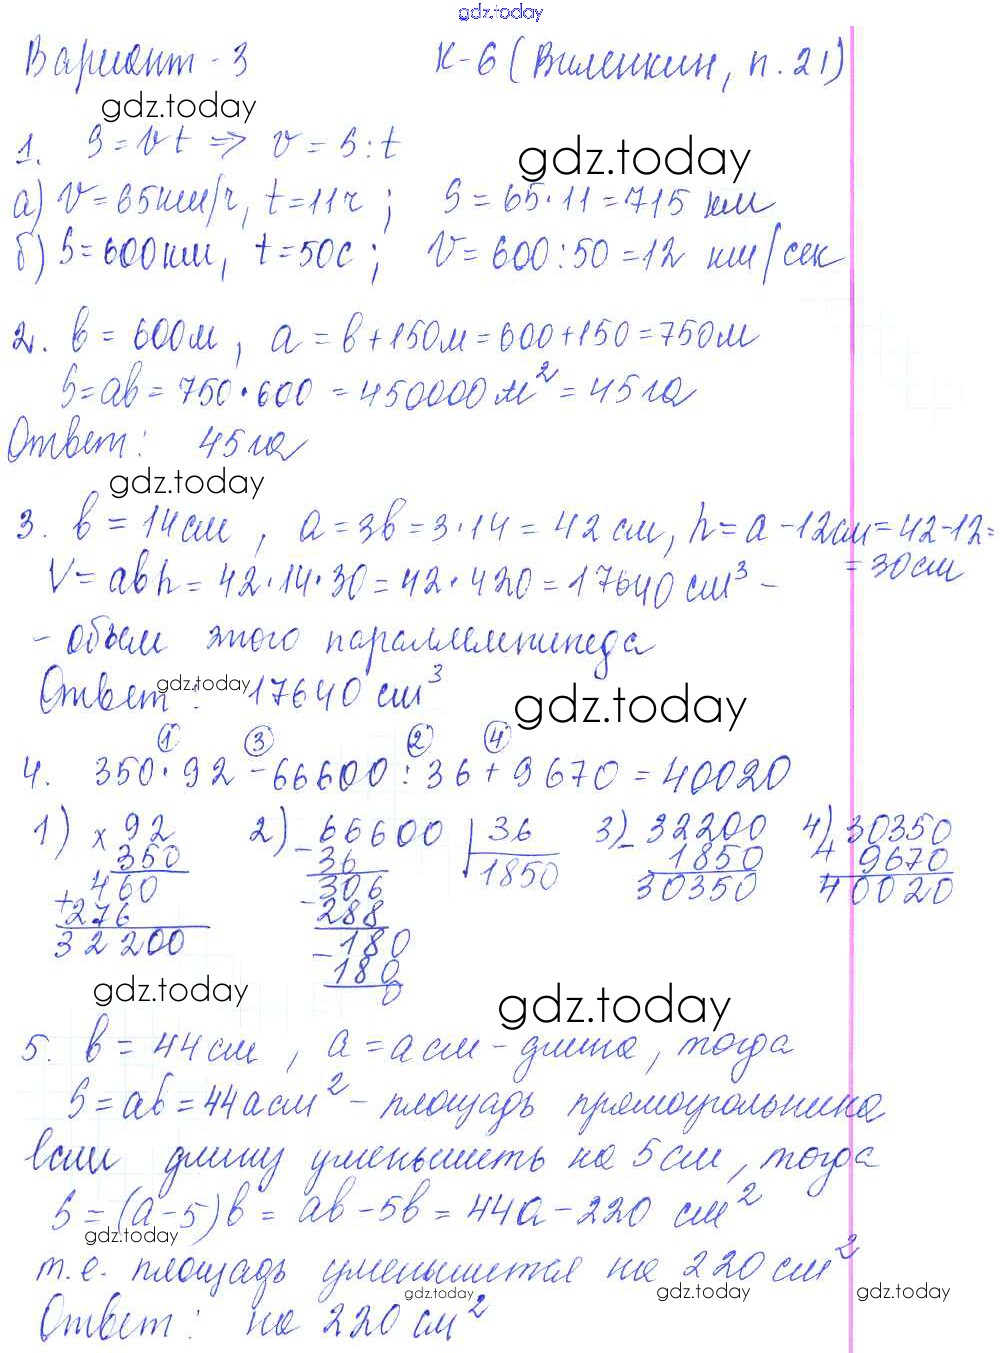 gdz.today
Вариант-3 К-6 (Виленкин, п.21)
gdz.today
1. S=vt ⇒ v=S:t
gdz.today
а) v=65км/ч, t=11ч; S=65·11=715 км
б) S=600км, t=50с; V=600:50=12 км/сек
2. b=600м, a=b+150м=600+150=750м
S=ab=750·600=450000м²=45га
Ответ: 45га
gdz.today
3. b=14см, a=3b=3·14=42см, h=a-12см=42-12=
=30см
V=abh=42·14·30=42·420=17640см³ -
- объем этого параллелепипеда
Ответ: 17640 см³
gdz.today
gdz.today
1 3 2 4
4. 350·92-66600:36+9670=40020
1) × 92 2) - 66600 | 36 3) - 32200 4) 30350
350 36 1850 1850 + 9670
460 - 306 30350 40020
+ 276 288
32200 - 180
180
0
gdz.today
gdz.today
5. b=44см, a=aсм-длина, тогда
S=ab=44aсм² - площадь прямоугольника
Если длину уменьшить на 5см, тогда
S=(a-5)b=ab-5b=44a-220 см²
gdz.today
т.е. площадь уменьшится на 220см²
gdz.today gdz.today gdz.today
Ответ: на 220см²